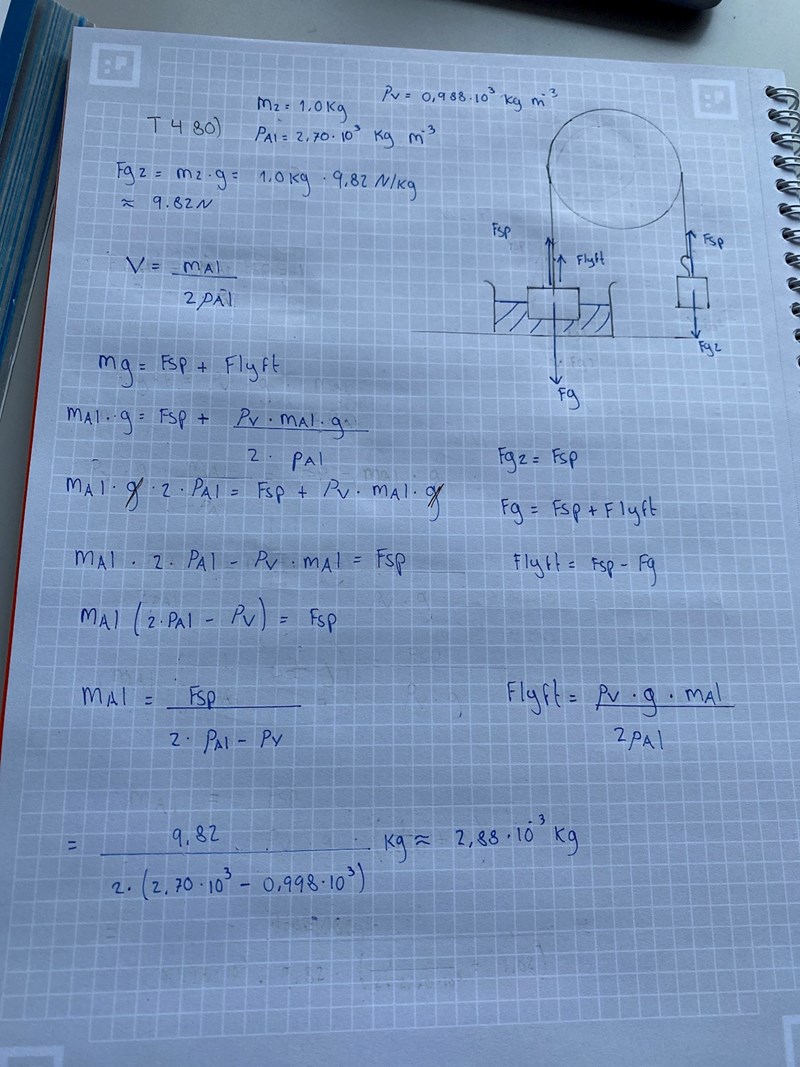 m2 = 1.0 Kg
ρv = 0,988·10³ kg m⁻³
T 4 80)
ρAl = 2,70·10³ Kg m⁻³
Fg2 = m2·g = 1.0 kg · 9,82 N/kg
≈ 9.82 N
Fsp
Flyft
Fsp
V = mAl / 2ρAl
Fg2
Fg
mg = Fsp + Flyft
mAl · g = Fsp + ρv · mAl · g / 2 · ρAl
Fg2 = Fsp
mAl · g · 2 · ρAl = Fsp + ρv · mAl · g
Fg = Fsp + Flyft
mAl · 2 · ρAl - ρv · mAl = Fsp
Flyft = Fsp - Fg
mAl (2·ρAl - ρv) = Fsp
mAl = Fsp / 2 · ρAl - ρv
Flyft = ρv · g · mAl / 2ρAl
= 9,82 / 2·(2,70·10³ - 0,998·10³) Kg ≈ 2,88·10⁻³ Kg